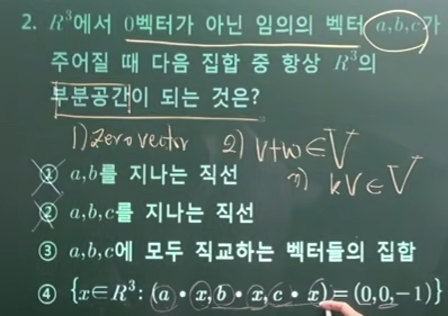 2. R³에서 0벡터가 아닌 임의의 벡터 a,b,c가
주어질 때 다음 집합 중 항상 R³의
부분공간이 되는 것은?
1) Zero vector 2) v+w∈V
3) kV∈V
① a,b를 지나는 직선
② a,b,c를 지나는 직선
③ a,b,c에 모두 직교하는 벡터들의 집합
④ {x∈R³: (a•x,b•x,c•x)=(0,0,-1)}